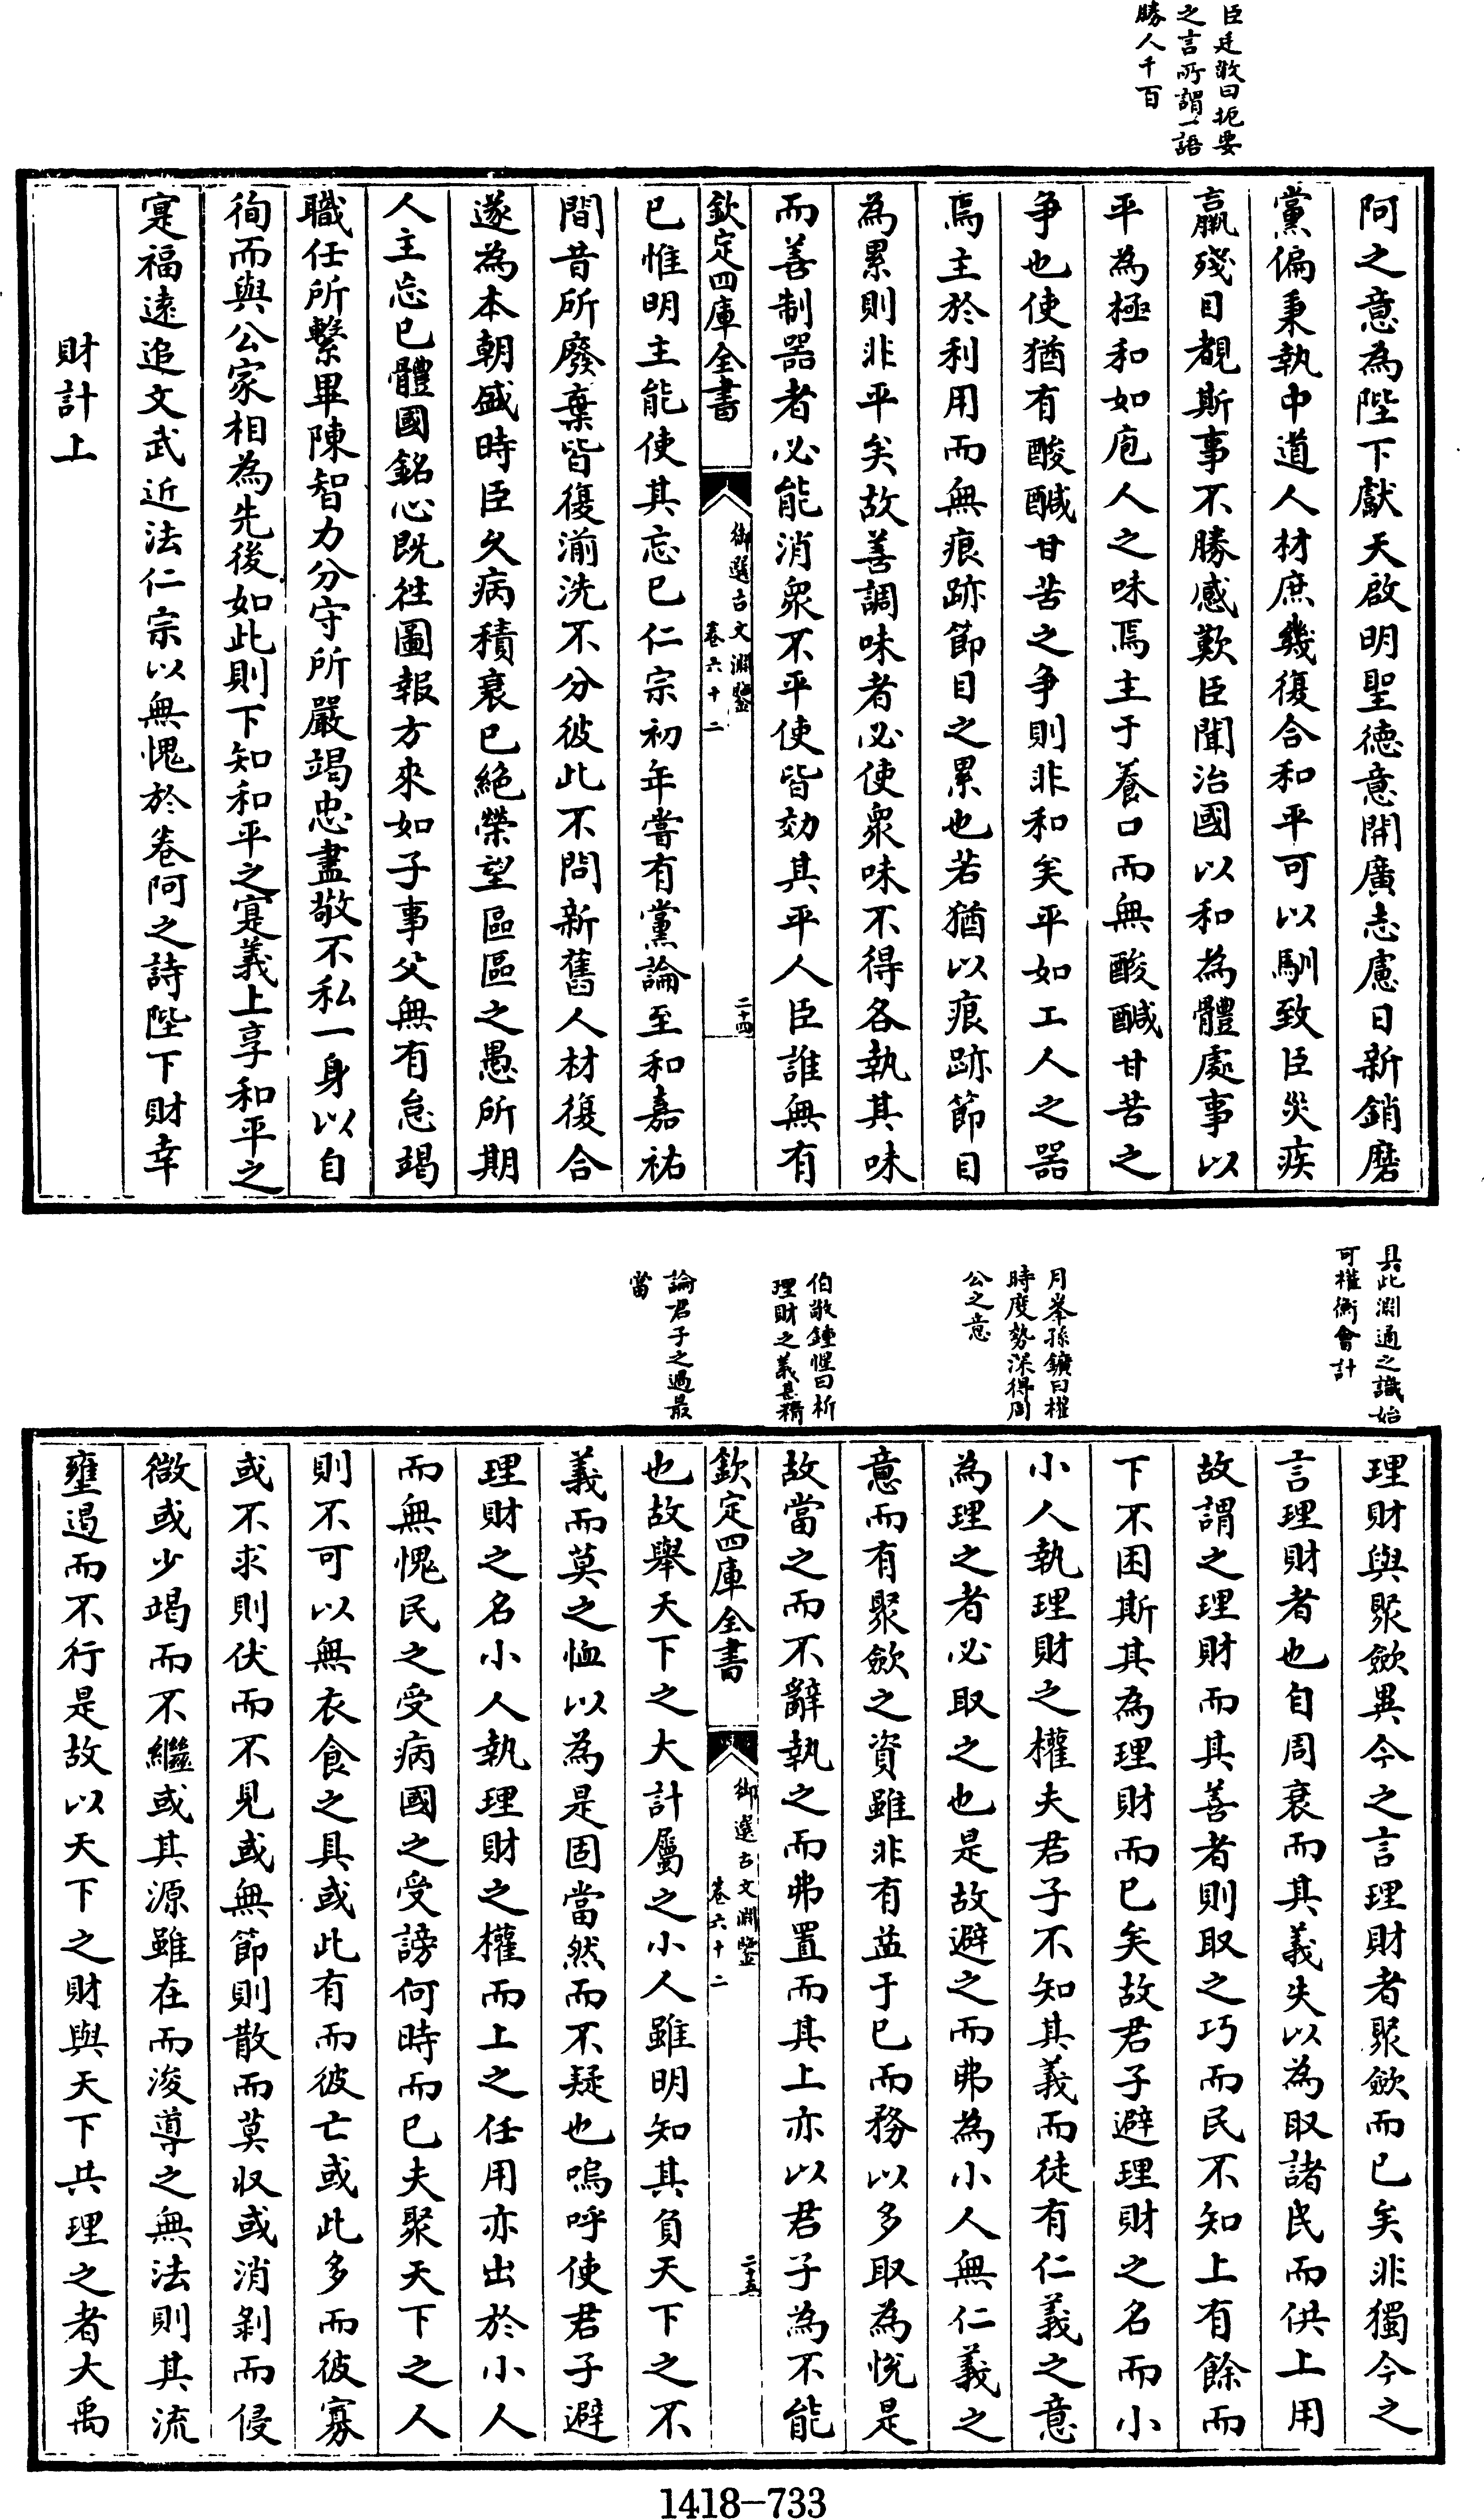 臣廷敬曰扼要
之言所謂一語
勝人千百
阿之意為陛下獻天啟明聖徳意開廣志慮日新銷磨
黨偏秉執中道人材庶幾復合和平可以馴致臣災疾
羸殘目覩斯事不勝感歎臣聞治國以和為體處事以
平為極和如庖人之味焉主于養口而無酸醎甘苦之
争也使猶有酸醎甘苦之争則非和矣平如工人之器
焉主於利用而無痕跡節目之累也若猶以痕跡節目
為累則非平矣故善調味者必使衆味不得各執其味
而善制器者必能消衆不平使皆効其平人臣誰無有
欽定四庫全書
御選古文淵鑒
卷六十二
二十四
已惟明主能使其忘已仁宗初年嘗有黨論至和嘉祐
間昔所廢棄皆復湔洗不分彼此不問新舊人材復合
遂為本朝盛時臣久病積衰已絶榮望區區之愚所期
人主忘已體國銘心既徃圖報方來如子事父無有怠竭
職任所繫畢陳智力分守所嚴竭忠盡敬不私一身以自
徇而與公家相為先後如此則下知和平之寔義上享和平之
寔福逺追文武近法仁宗以無愧於卷阿之詩陛下財幸
財計上
具此淵通之識始
可權衡會計
月峯孫鑛曰權
時度勢深得周
公之意
伯敬鍾惺曰析
理財之義甚精
論君子之過最
當
理財與聚歛異今之言理財者聚歛而已矣非獨今之
言理財者也自周衰而其義失以為取諸民而供上用
故謂之理財而其善者則取之巧而民不知上有餘而
下不困斯其為理財而已矣故君子避理財之名而小
小人執理財之權夫君子不知其義而徒有仁義之意
為理之者必取之也是故避之而弗為小人無仁義之
意而有聚歛之資雖非有益于已而務以多取為恱是
故當之而不辭執之而弗置而其上亦以君子為不能
欽定四庫全書
御選古文淵鑒
卷六十二
二十五
也故舉天下之大計屬之小人雖明知其負天下之不
義而莫之恤以為是固當然而不疑也嗚呼使君子避
理財之名小人執理財之權而上之任用亦出於小人
而無愧民之受病國之受謗何時而已夫聚天下之人
則不可以無衣食之具或此有而彼亡或此多而彼寡
或不求則伏而不見或無節則散而莫收或消剝而侵
微或少竭而不繼或其源雖在而浚導之無法則其流
壅遏而不行是故以天下之財與天下共理之者大禹
1418-733